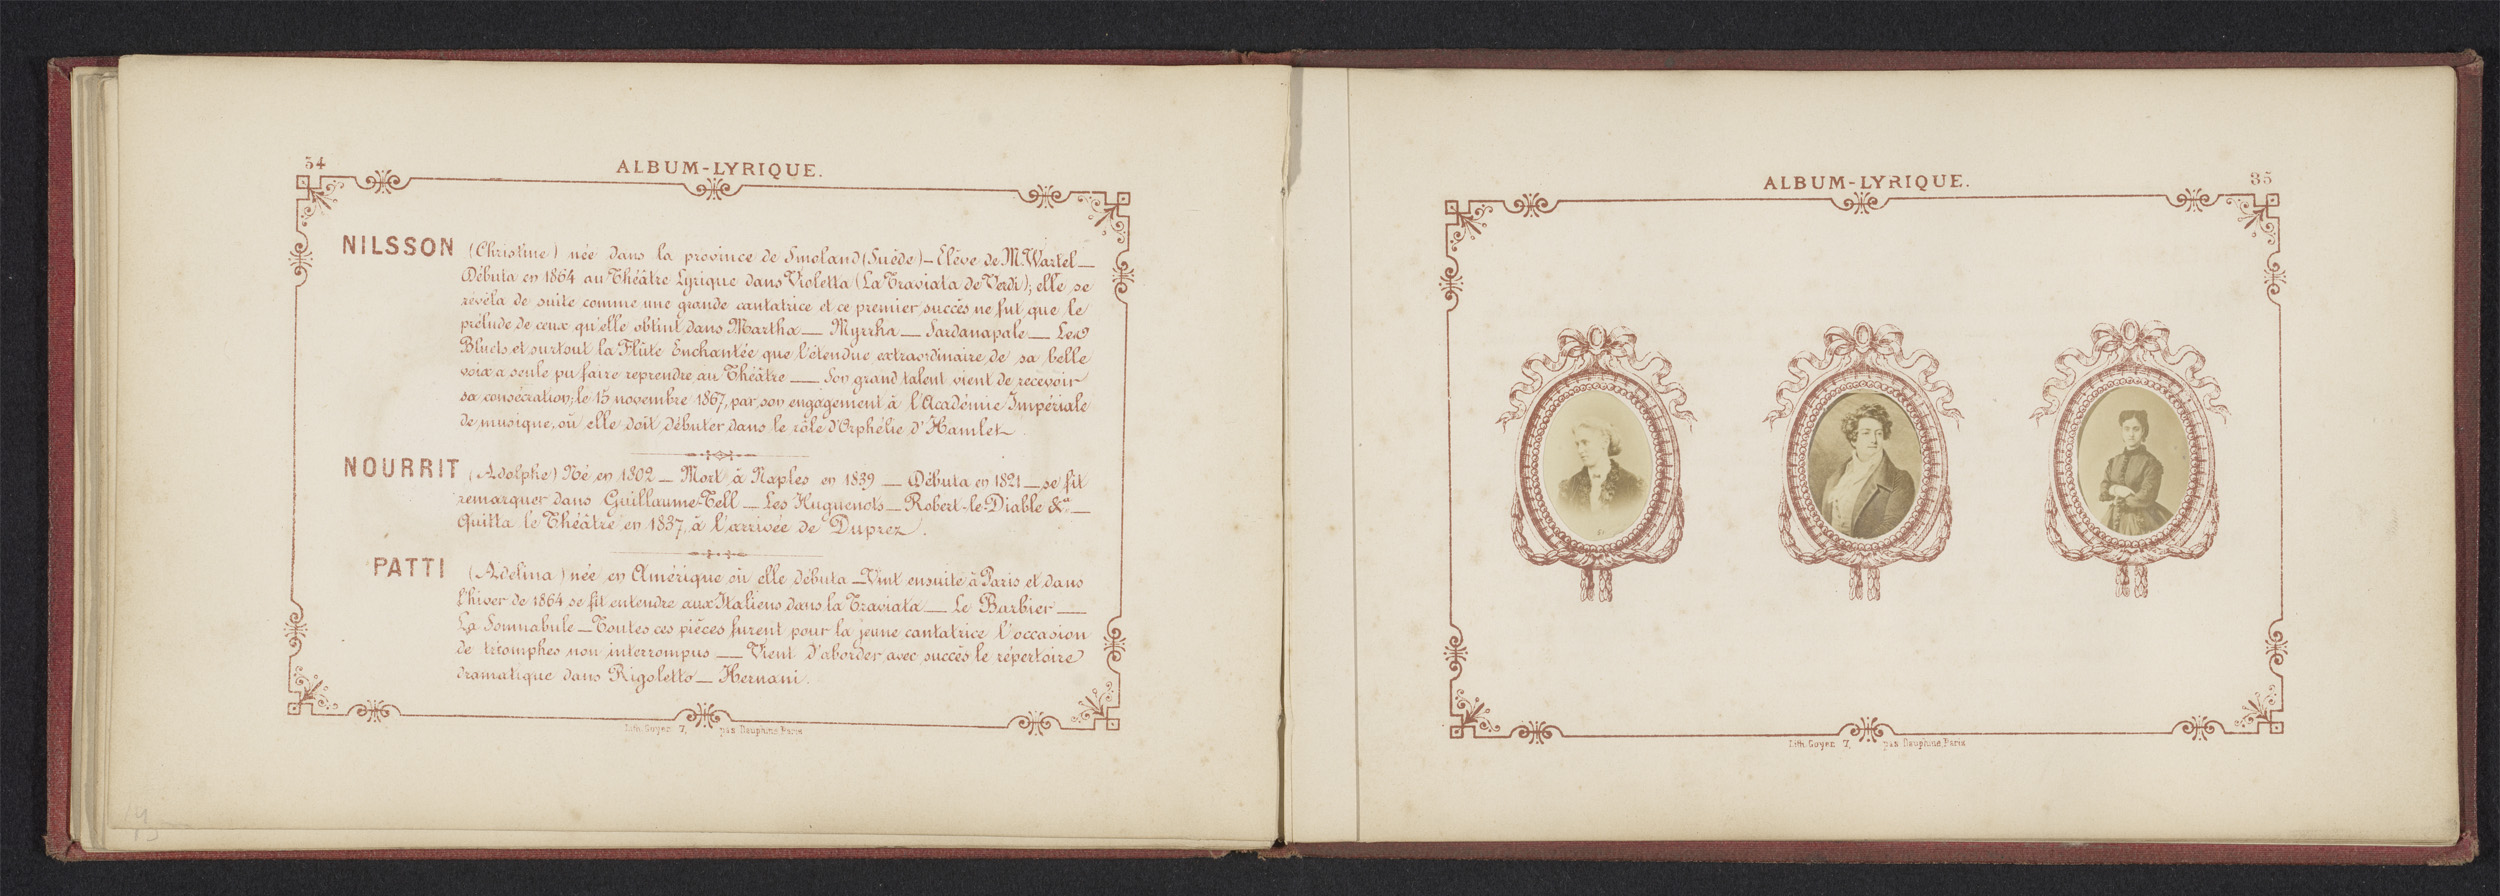 34
ALBUM-LYRIQUE.
NILSSON (Christine) née dans la province de Smoland (Suède) – Elève de M. Wartel —
Débuta en 1864 au Théâtre Lyrique dans Violetta (La Traviata de Verdi); elle se
révéla de suite comme une grande cantatrice et ce premier succès ne fut que le
prélude de ceux qu'elle obtint dans Martha — Myrrha — Sardanapale — Les
Bluets et surtout la Flûte Enchantée que l'étendue extraordinaire de sa belle
voix a seule pu faire reprendre au Théâtre — Son grand talent vient de recevoir
sa consécration; le 15 novembre 1867, par son engagement à l'Académie Impériale
de musique, où elle doit débuter dans le rôle d'Orphélie d'Hamlet.
NOURRIT (Adolphe) Né en 1802 — Mort à Naples en 1839 — Débuta en 1821 — se fit
remarquer dans Guillaume-Tell — Les Huguenots — Robert-le-Diable &a —
Quitta le Théâtre en 1837, à l'arrivée de Duprez.
PATTI (Adelina) née en Amérique où elle débuta — Vint ensuite à Paris et dans
l'hiver de 1864 se fit entendre aux Italiens dans la Traviata — Le Barbier —
La Somnabule — Toutes ces pièces furent pour la jeune cantatrice l'occasion
de triomphes non interrompus — Vient d'aborder avec succès le répertoire
dramatique dans Rigoletto — Hernani.
Lith. Goyer 7, pas Dauphine, Paris
ALBUM-LYRIQUE.
35
Lith. Goyer 7, pas Dauphine, Paris